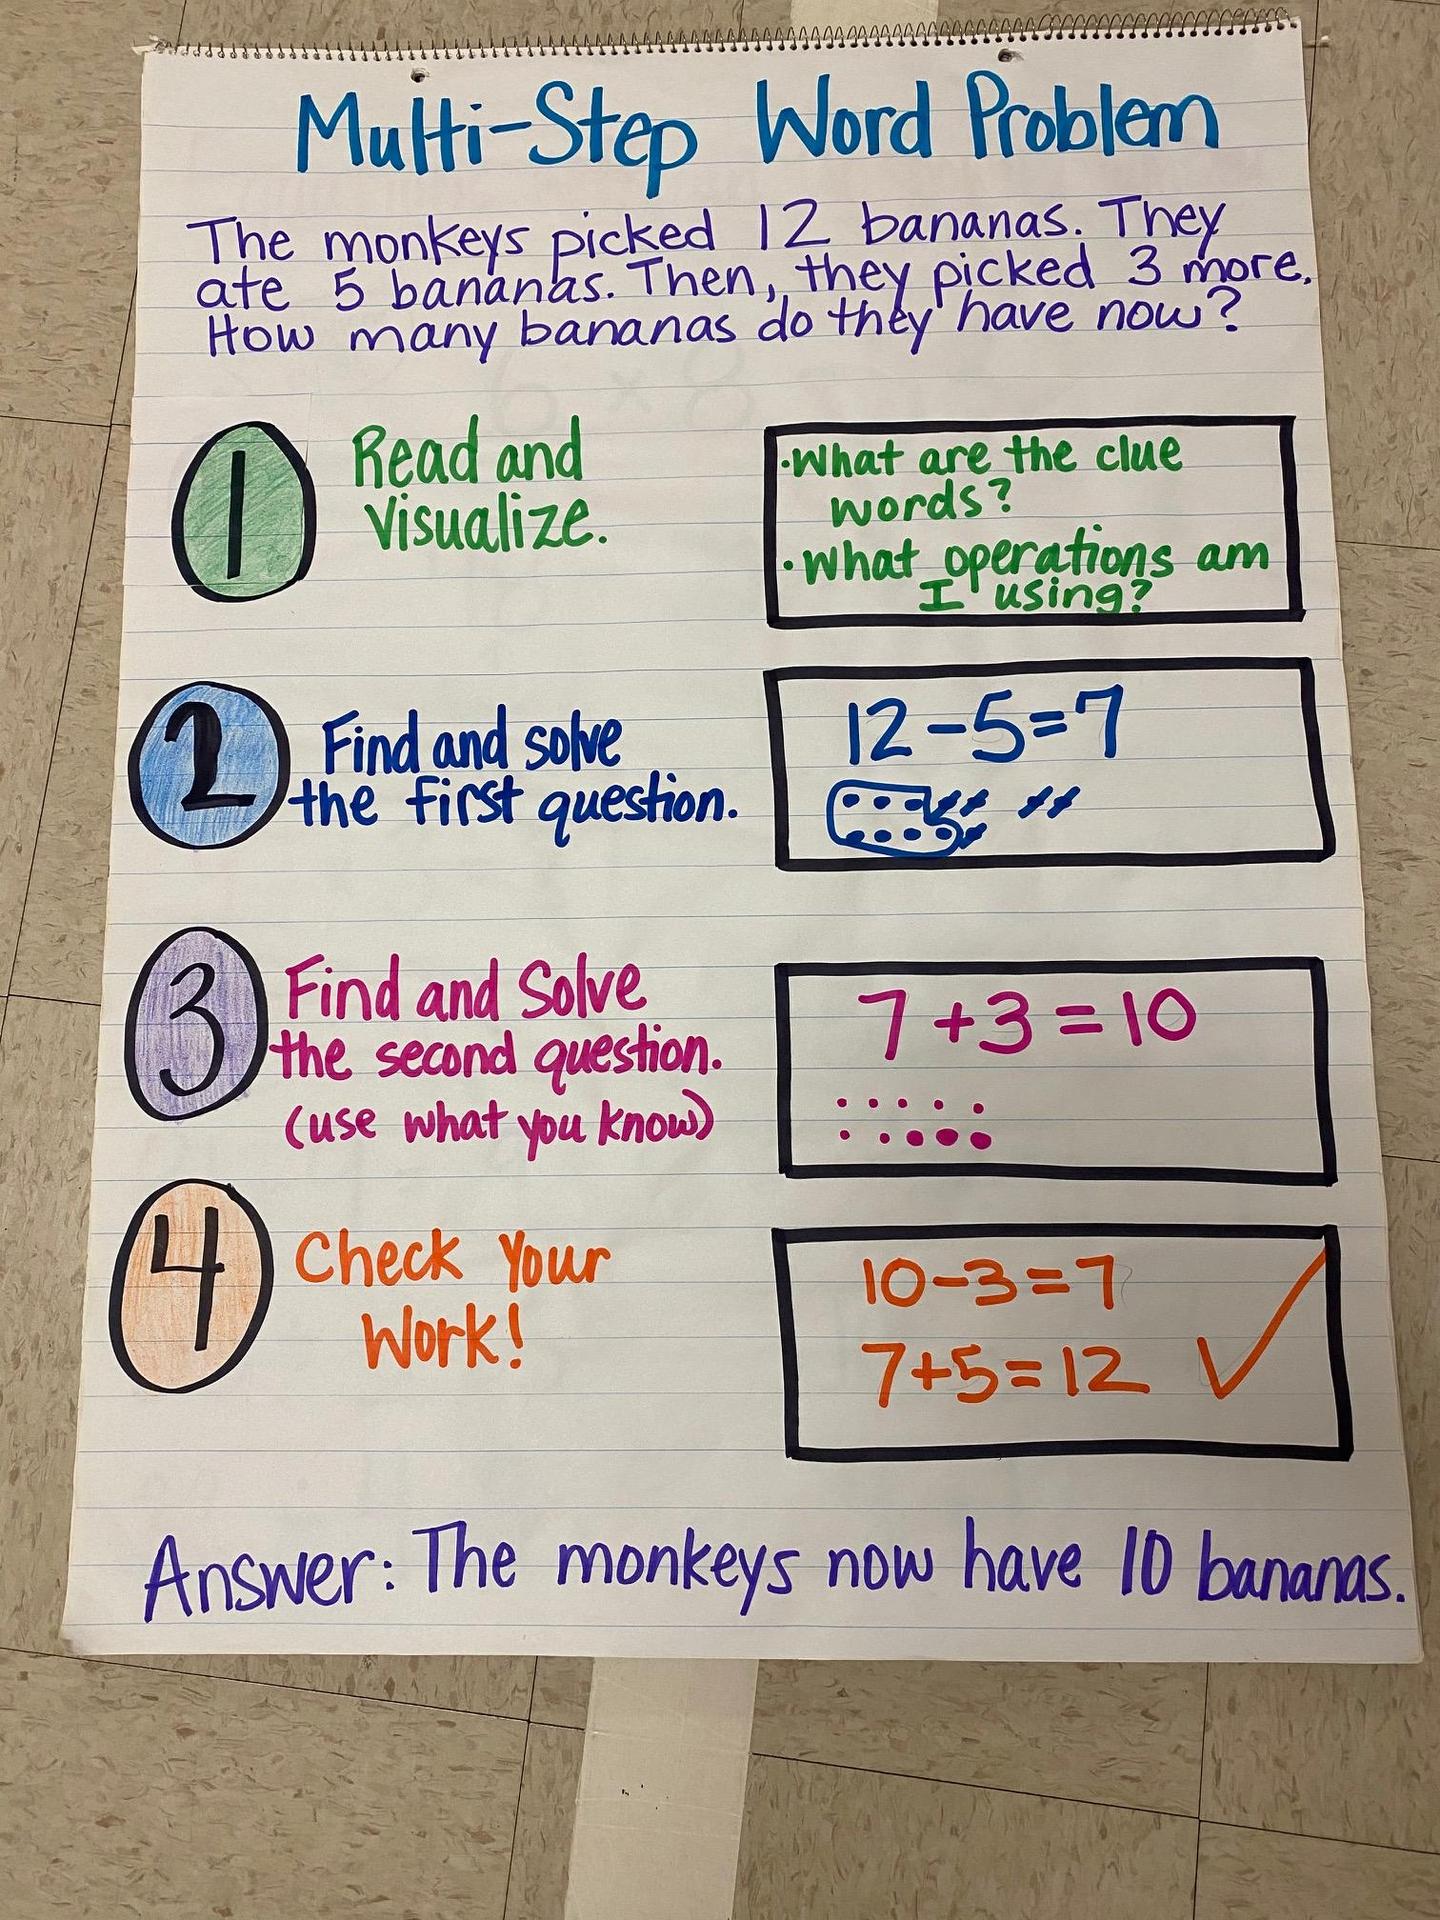 Multi-Step Word Problem
The monkeys picked 12 bananas. They
ate 5 bananas. Then, they picked 3 more.
How many bananas do they have now?
1
Read and
Visualize.
•What are the clue
words?
•What operations am
I using?
2
Find and solve
the first question.
12-5=7
3
Find and Solve
the second question.
(use what you know)
7+3=10
4
Check Your
Work!
10-3=7
7+5=12 ✓
Answer: The monkeys now have 10 bananas.